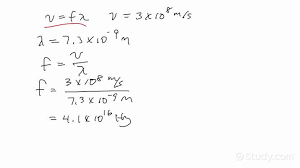 v = fλ   v = 3 x 10⁸ m/s
λ = 7.3 x 10⁻⁹ m
f = v/λ
f = 3 x 10⁸ m/s / 7.3 x 10⁻⁹ m
= 4.1 x 10¹⁶ Hz
© Study.com